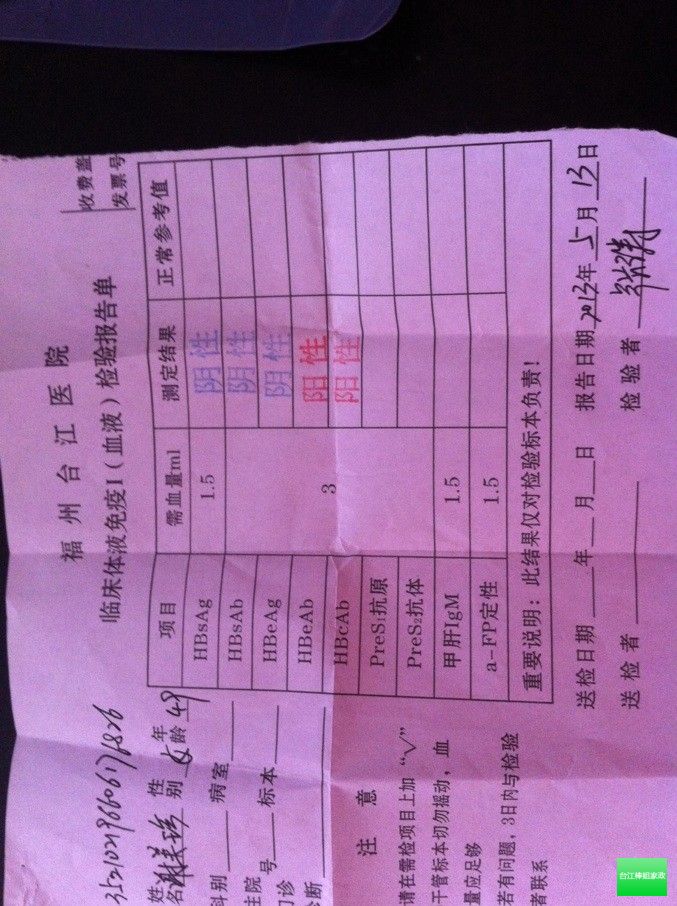 福州台江医院
临床体液免疫I（血液）检验报告单
收费盖
发票号
姓名 性别 女 年龄 49
科别 病室
住院号 标本
门诊
诊断
注 意
请在需检项目上加“√”
干管标本切勿摇动，血
量应足够
若有问题，3日内与检验
者联系
项目 需血量ml 测定结果 正常参考值
HBsAg 1.5 阴性
HBsAb 阴性
HBeAg 阴性
3
HBeAb 阳性
HBcAb 阳性
PreS₁抗原
PreS₂抗体
甲肝IgM 1.5
a-FP定性 1.5
重要说明：此结果仅对检验标本负责！
送检日期 年 月 日 报告日期 2013年 5月 13日
送检者 检验者
台江棒姐家政